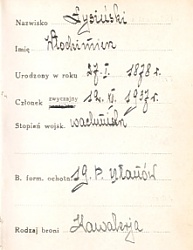 Nazwisko Łysiński
Imię Włodzimierz
Urodzony w roku 27. I. 1878 r.
Członek zwyczajny 12. VI. 1937 r.
Stopień wojsk.
B. form. ochotn. 19. p. ułanów
Rodzaj broni Kawalerja